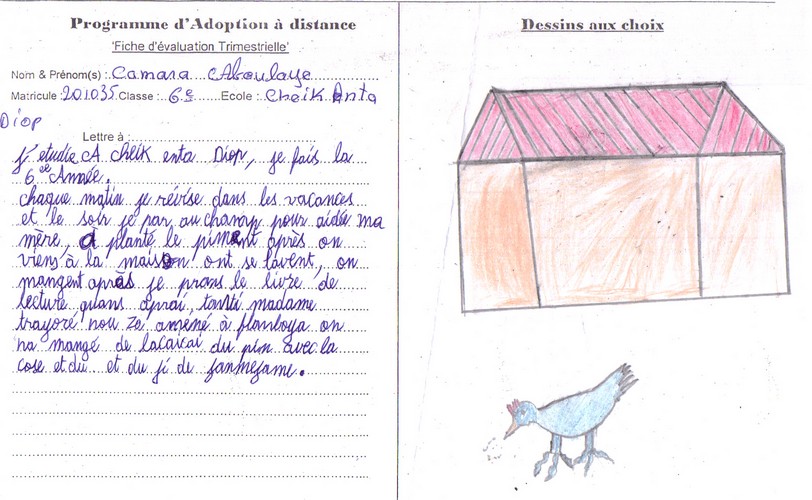 Programme d'Adoption à distance
'Fiche d'évaluation Trimestrielle'
Nom & Prénom(s) : Camara Aboulaye
Matricule : 201035 Classe : 6e Ecole : Cheik Anta
Diop
Lettre à :
J'etudie A cheik enta Diop, je fais la
6 ee Année.
chaque matin je révise dans les vacances
et le soir je par au champ pour aidée ma
mère, à planté le piment après on
viens à la maison ont se lavent, on
mangent après je prans le livre de
lecture quans aprai, tanti madame
trayoré nou za amené à flamboya on
na mangé de lacaicai du pin avec la
cose et du et du ji de fanmefame.
Dessins aux choix